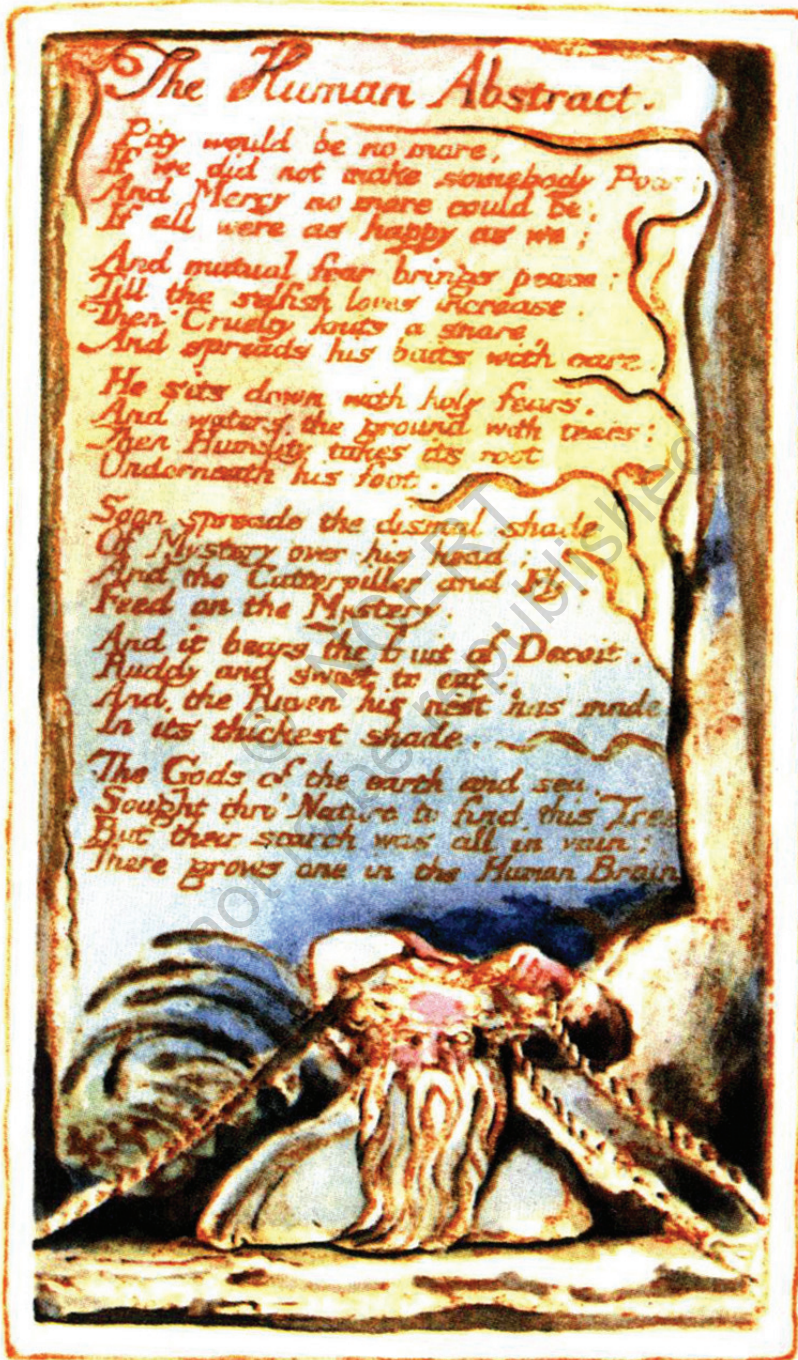 The Human Abstract.
Pity would be no more,
If we did not make somebody Poor:
And Mercy no more could be,
If all were as happy as we;
And mutual fear brings peace:
Till the selfish loves increase.
Then Cruelty knits a snare,
And spreads his baits with care.
He sits down with holy fears,
And waters the ground with tears:
Then Humility takes its root
Underneath his foot.
Soon spreads the dismal shade
Of Mystery over his head;
And the Catterpiller and Fly,
Feed on the Mystery
And it bears the fruit of Deceit.
Ruddy and sweet to eat:
And the Raven his nest has made
In its thickest shade.
The Gods of the earth and sea,
Sought thro' Nature to find this Tree
But their search was all in vain:
There grows one in the Human Brain
© NCERT
not to be republished